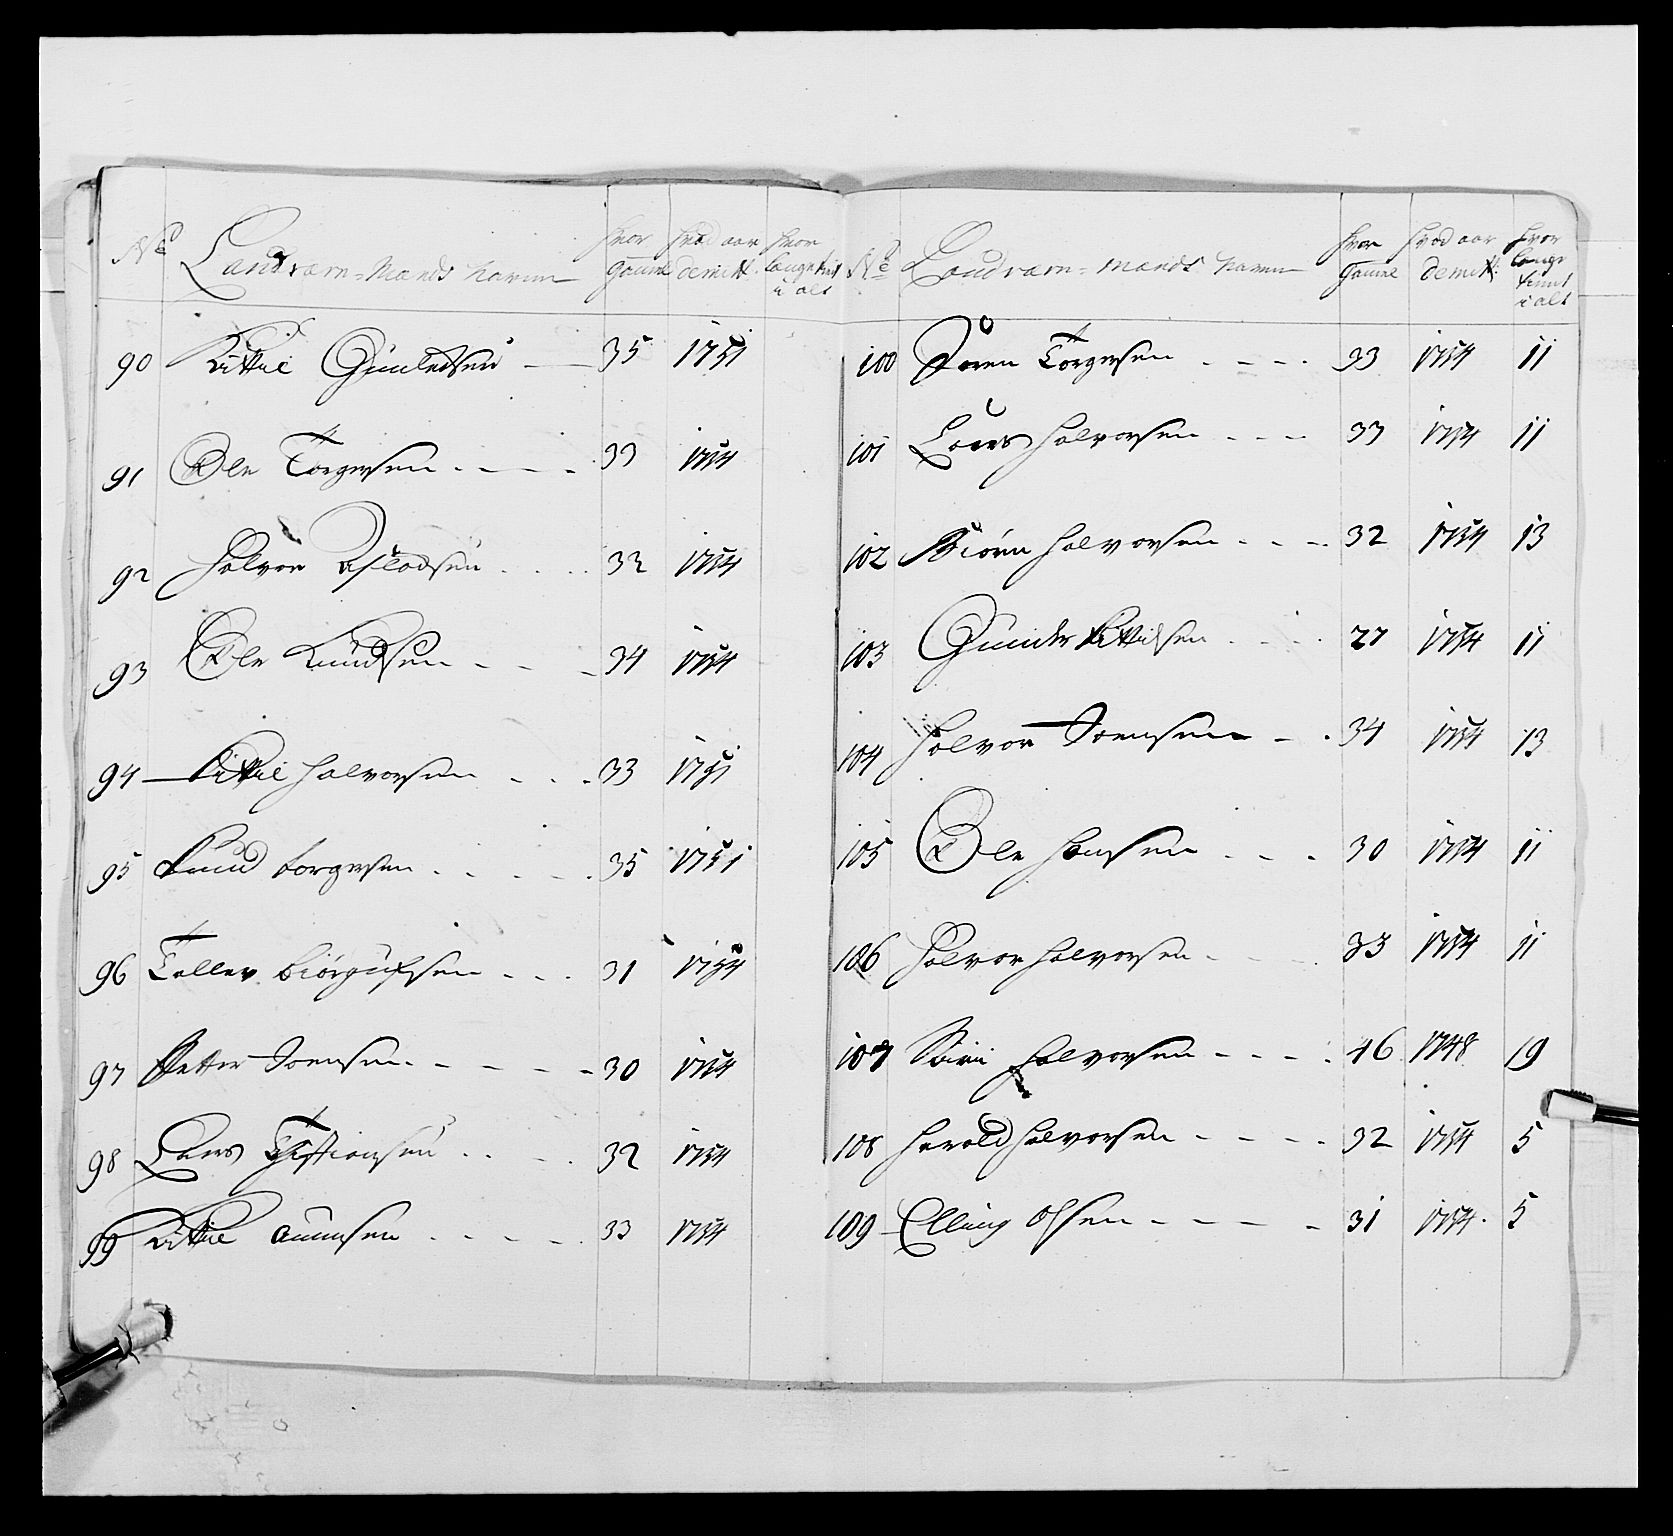 No Landværn-Mænds Navne hvor gaml hvad aar demitt. hvor længe tient i alt
90 Kittil Gunledsen 35 1751
91 Ole Torgersen 33 1754
92 Halvor Asladsen 32 1754
93 Ole Knudsen 34 1754
94 Kittil Halvorsen 33 1751
95 Knud Torgersen 35 1751
96 Tallev Biörgufsen 31 1754
97 Petter Joensen 30 1754
98 Lars Christiansen 32 1754
99 Kittil Aunnsen 33 1754
No Landværn-Mænds Navne hvor gaml hvad aar demitt: hvor længe tient i alt
100 Søren Torgersen 33 1754 11
101 Lars Halvorsen 33 1754 11
102 Biørn Halvorsen 32 1754 13
103 Gunder Kittilsen 27 1754 11
104 Halvor Joensen 34 1754 13
105 Ole Hansen 30 1754 11
106 Halvor Halvorsen 33 1754 11
107 Halvorsen 46 1748 19
108 Harald Halvorsen 32 1754 5
109 Elling Olsen 31 1754 5